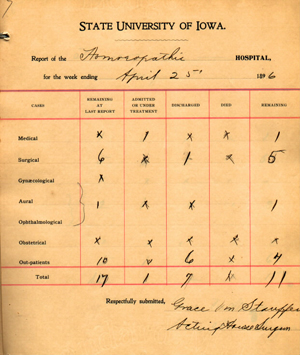 STATE UNIVERSITY OF IOWA.
Report of the Homoeopathic HOSPITAL,
for the week ending April 25" 1896
CASES REMAINING AT LAST REPORT ADMITTED OR UNDER TREATMENT DISCHARGED DIED REMAINING
Medical x 1 x x 1
Surgical 6 x 1 x 5
Gynæcological x
Aural 1 x x 1
Ophthalmological
Obstetrical x x x x x
Out-patients 10 v 6 x 4
Total 17 1 7 11
Respectfully submitted,
Grace Von Stauffen
Acting House Surgeon